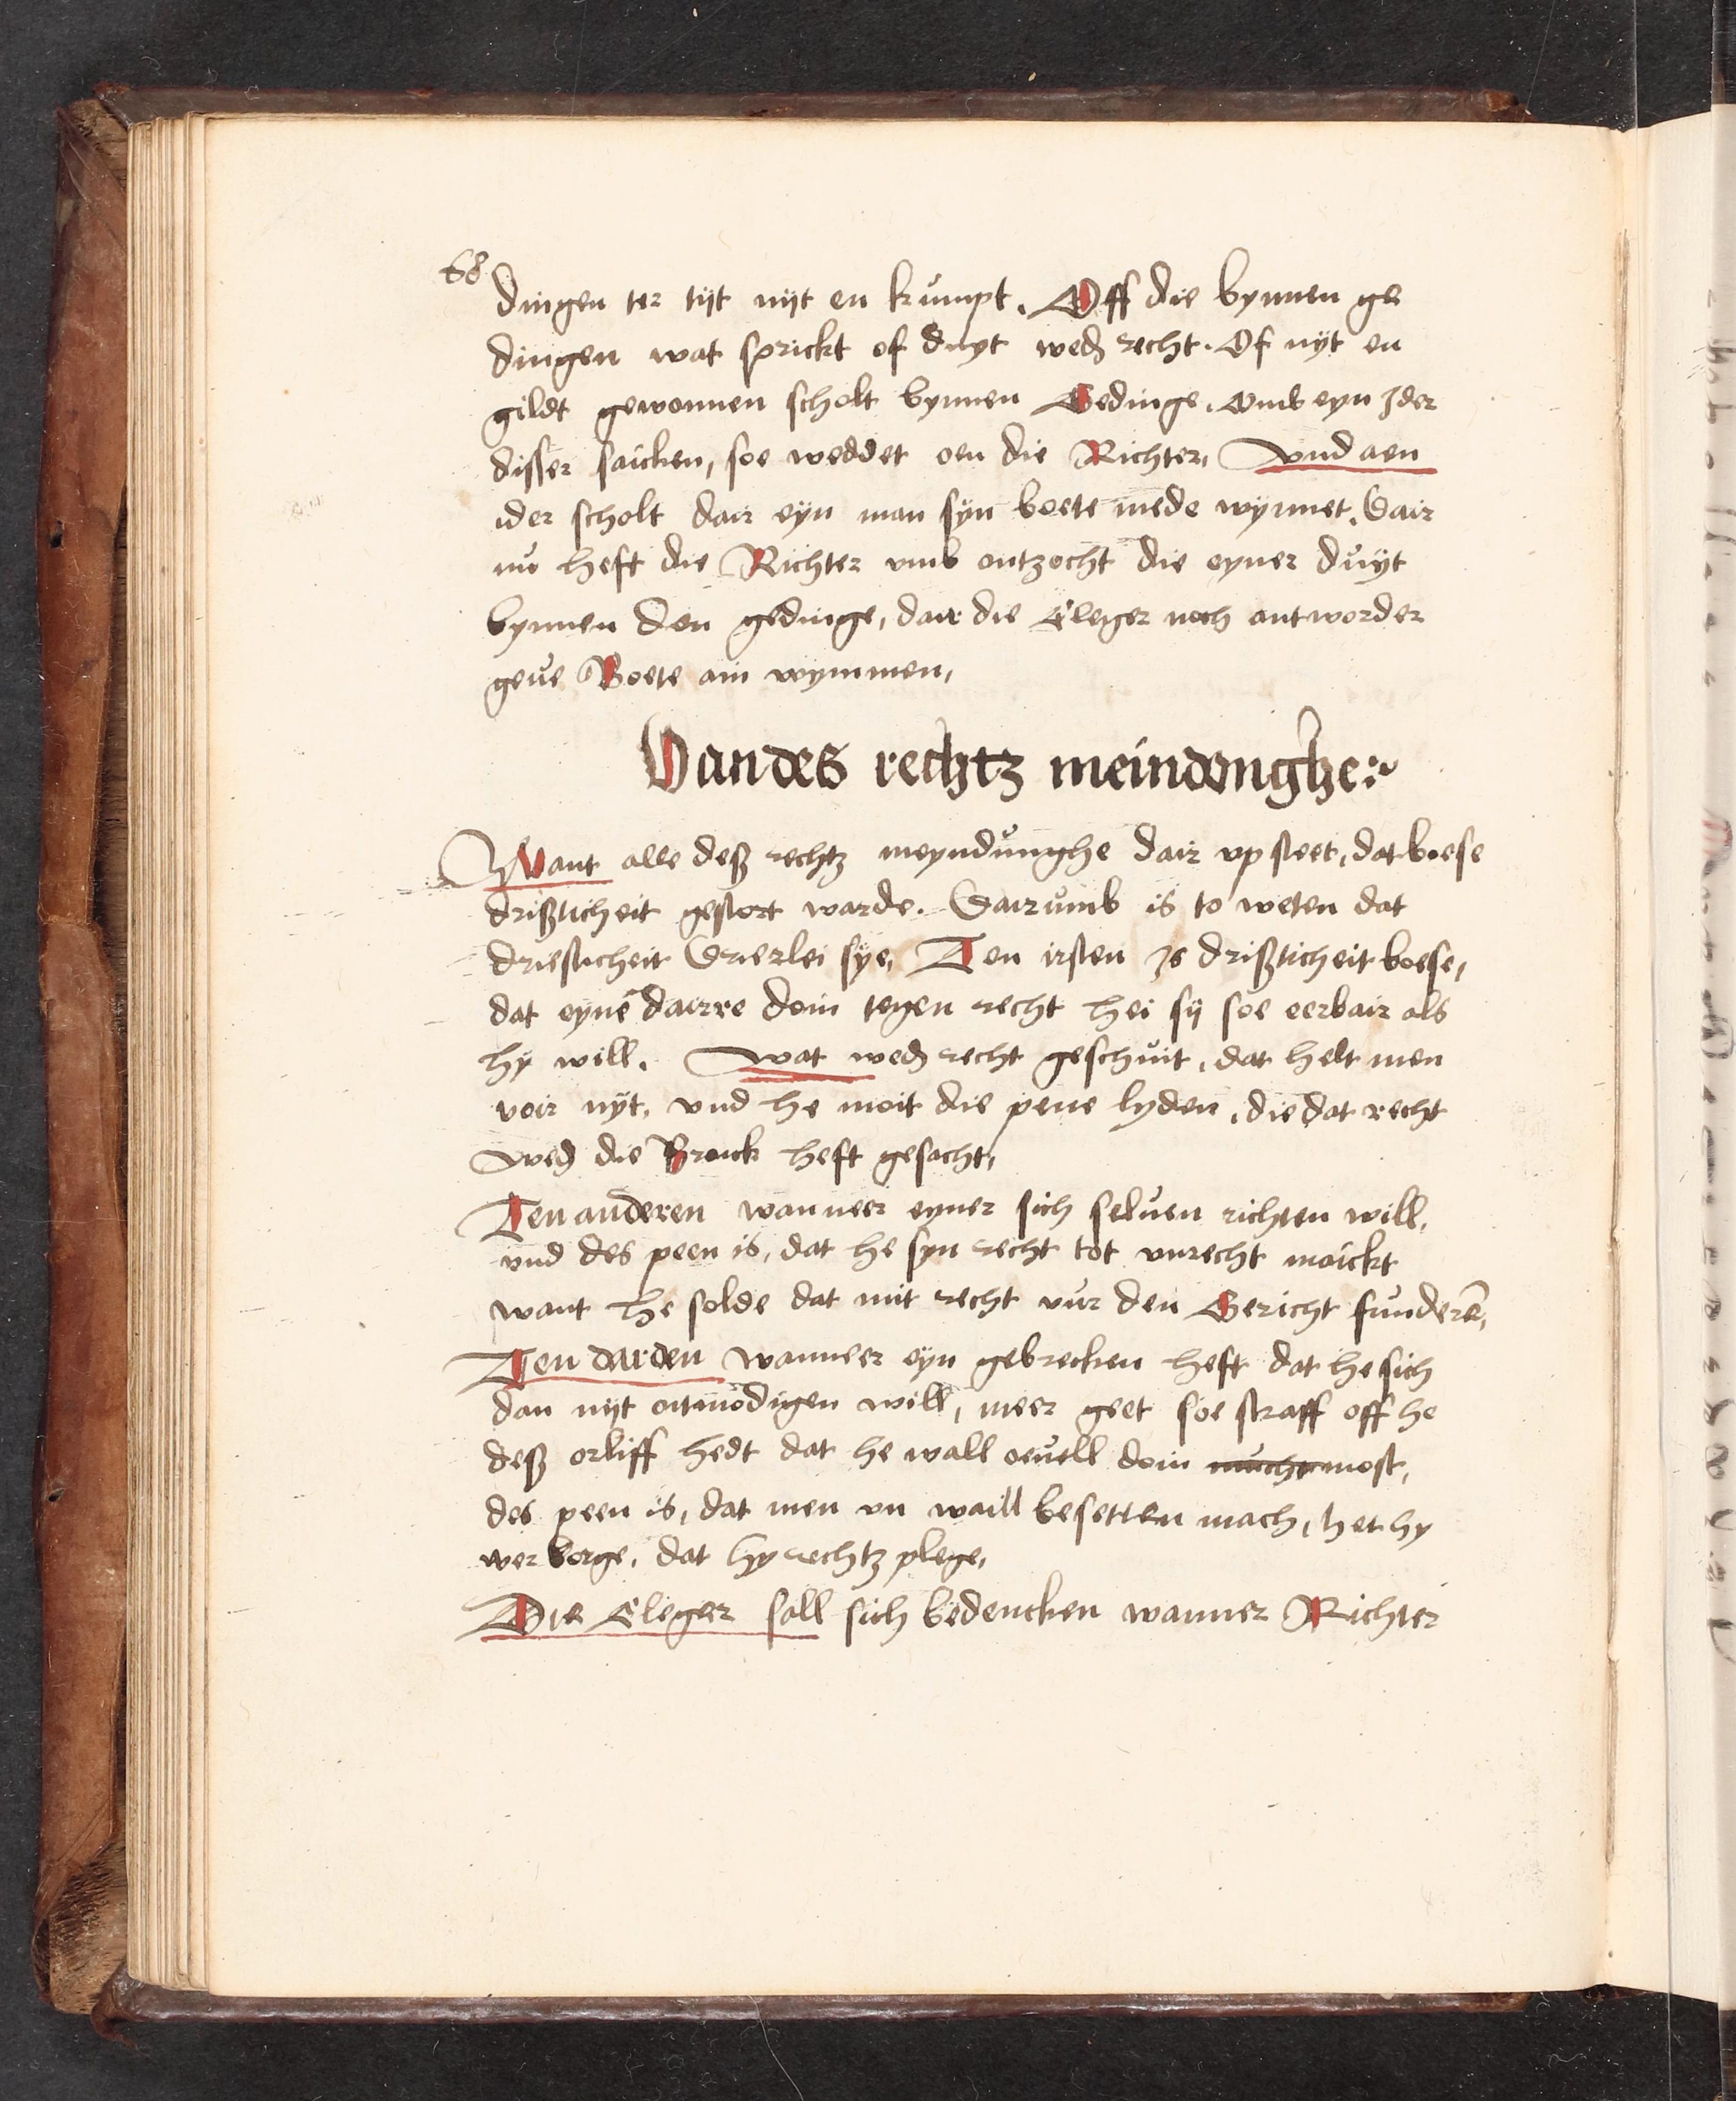 68
dingen ter tijt nijt en kŭmpt. Off die bynnen ge
dingen wat sprickt of duyt wed' recht. Of nyt en
gildt gewonnen scholt bynnen Gedinge. Vmb eyn Jder
disser saicken, soe weddet oen die Richter, vnd aen
ider scholt dair eyn man syn boete mede wynnet. Dair
nu heft die Richter vmb ontzocht die eyner dŭyt
bynnen den gedinge, dair die Cleger noch antworder
geue Boete ain wynnen,
Van des rechtz meindonghe
Want alle deß rechtz meyndŭnghe dair vp steet, dat boese
drißticheit gestort warde. Dairŭmb is to weten dat
driesticheit Drierlei sye, Ten irsten Js drißticheit boese,
dat eynē dairre doin tegen recht hei sij soe eerbair als
hy will. wat wed' recht geschŭit, dat helt men
voir nyt, vnd he moit die pene lyden, die dat recht
wed' die Broick heft gesacht,
Ten anderen wanneer eyner sich seluen richten will,
vnd des peen is, dat he syn recht tot vnrecht maickt
want he solde dat mit recht vur den Gericht fŭnderē,
Ten darden wanneer eyn gebrecken heft dat he sich
dan nijt oitmodigen will, meer geet soe straff off he
deß orliff hedt dat he wall oeuell doin mucht most,
des peen is, dat men on waill besetten mach, het hy
wer borge, dat hy rechtz plege,
Die Cleger soll sich bedencken wanner Richter